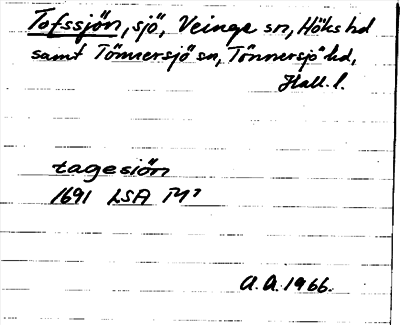 Tofssjön, sjö, Veinge sn, Höks hd
samt Tönnersjö sn, Tönnersjö hd,
Hall. l.
tagesiön
1691 LSA
A.A. 1966.